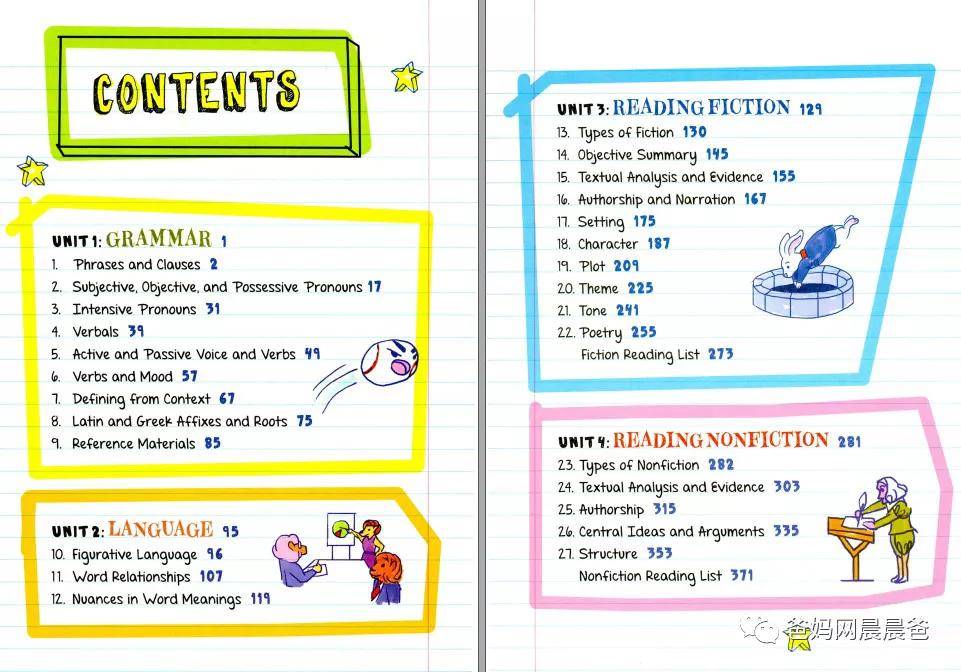 CONTENTS
UNIT 1: GRAMMAR 1
1. Phrases and Clauses 2
2. Subjective, Objective, and Possessive Pronouns 17
3. Intensive Pronouns 31
4. Verbals 39
5. Active and Passive Voice and Verbs 49
6. Verbs and Mood 57
7. Defining from Context 67
8. Latin and Greek Affixes and Roots 75
9. Reference Materials 85
UNIT 2: LANGUAGE 95
10. Figurative Language 96
11. Word Relationships 107
12. Nuances in Word Meanings 119
UNIT 3: READING FICTION 129
13. Types of Fiction 130
14. Objective Summary 145
15. Textual Analysis and Evidence 155
16. Authorship and Narration 167
17. Setting 175
18. Character 187
19. Plot 209
20. Theme 225
21. Tone 241
22. Poetry 255
Fiction Reading List 273
UNIT 4: READING NONFICTION 281
23. Types of Nonfiction 282
24. Textual Analysis and Evidence 303
25. Authorship 315
26. Central Ideas and Arguments 335
27. Structure 353
Nonfiction Reading List 371
爸妈网晨晨爸